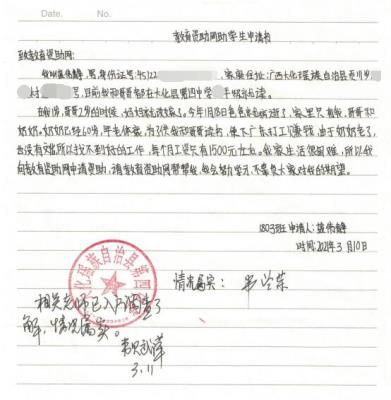 Date. No.
教育资助网助学生申请书
致教育资助网:
男,身份证号:45122 家庭住址:广西大化瑶族自治县贡川乡
村 号,目前我和哥哥都在大化县第四中学 读。
在我 岁,哥哥2岁的时候,妈妈 改嫁了。今年1月18日爸爸 病逝了,家里只有我,哥哥和
奶奶。奶奶已经60岁,年老体衰,为了供我和哥哥读书,便下广东打工赚钱,由于奶奶老了,
也没有文 所以找不到好的工作,每个月工资只有1500元左右。我家生活很困难,所以我
向教育资助网申请资助,请教育资助网帮帮我,我会努力学习,不辜负大家对我的期望。
1803班 申请人:
时间:2021年3月10日
大化瑶族自治县第四
情况属实:
相关老师已入户调查了
解,情况属实。
3.11